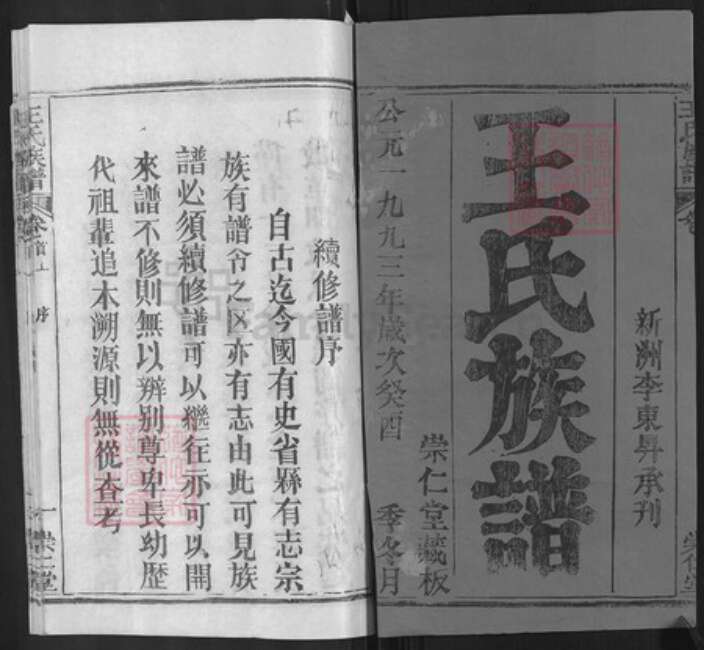 新洲李東昇承刊
王氏族譜
崇仁堂藏板
公元一九九三年歲次癸酉 季冬月
續修譜序
自古迄今國有史省縣有志宗
族有譜令之区亦有志由此可見族
譜必須續修譜可以繼往亦可以開
來譜不修則無以辨别尊卑長幼歷
代祖輩追木溯源則無從查考
王氏族譜 卷首上 序 一 崇仁堂